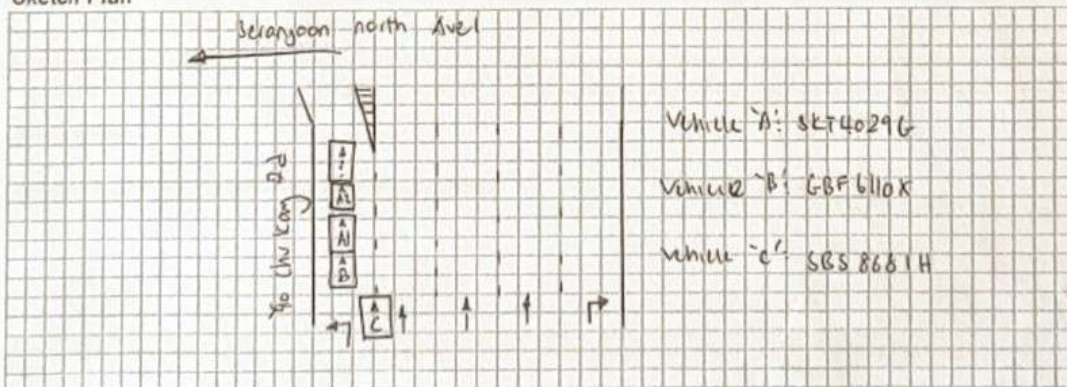 Sketch Plan
Serangoon north Ave1
Yio Chu Kang Rd
Vehicle 'A': SKT4029G
Vehicle 'B': GBF6110X
Vehicle 'C': SBS8681H
A2
A1
B
C